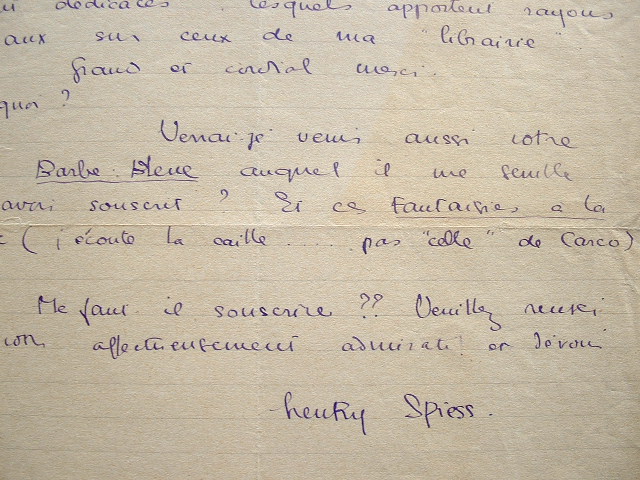 dédicacés. lesquels apportent rayons
aux sur ceux de ma "librairie".
Grand et cordial merci.
quoi ?
Verrai-je venir aussi votre
Barbe-Bleue auquel il me semble
avoir souscrit ? Et ces Fantaisies à la
( j'écoute la caille ...... pas "celle" de Carco)
Me faut-il souscrire ?? Veuillez
affectueusement admiratif et dévoué
henry Spiess.